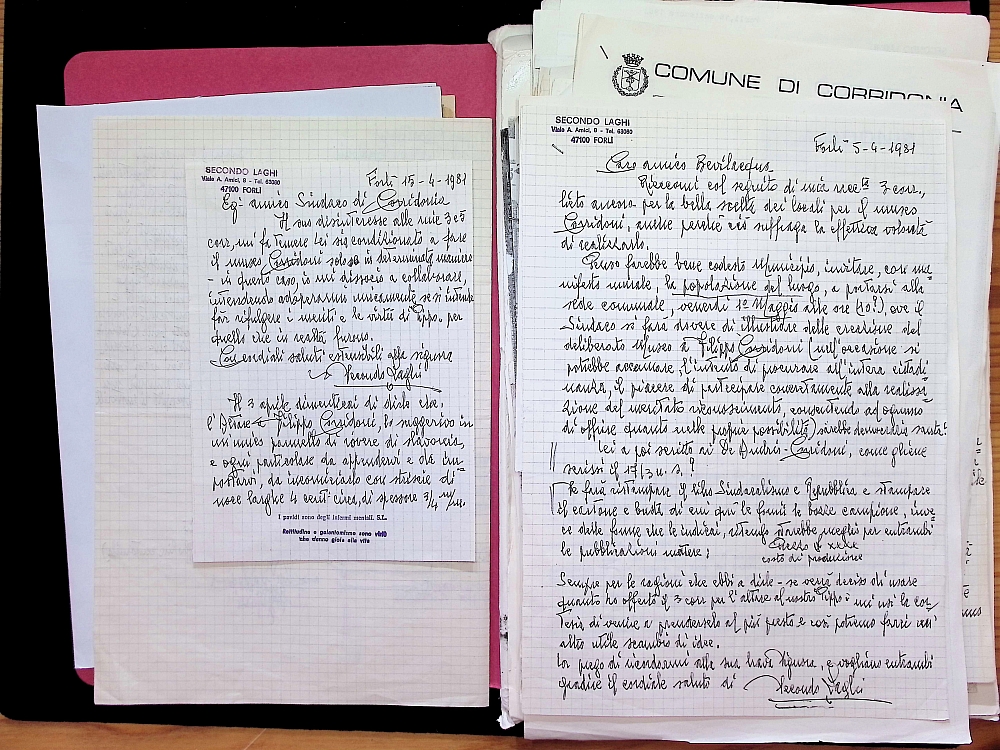 SECONDO LAGHI
Viale A. Amici, 8 - Tel. 63060
47100 FORLÌ
Forlì 15-4-1981
Eg. amico Sindaco di Corridonia
Il suo disinteresse alle mie 3 e 5
corr, mi fa temere Lei sia condizionato a fare
il museo Corridoni solo in determinata maniera
- in questo caso, io mi dissocio a collaborare,
intendendo adoperarmi unicamente se si intende
far rifulgere i meriti e le virtù di Pippo per
quello che in realtà furono.
Con cordiali saluti estensibili alla signora
Secondo Laghi
Il 3 aprile dimenticai di dirle che:
l'Altare a Filippo Corridoni, lo suggerivo in
un unico pannello di rovere di slavonia,
e ogni particolare da appendervi e da im-
postarvi, da incorniciarlo con striscie di
noce larghe 4 cent. circa, di spessore 3/4 m/m.
I pavidi sono degli infermi mentali. S.L.
Rettitudine e galantomismo sono virtù
che danno gioia alla vita
COMUNE DI CORRIDONIA
SECONDO LAGHI
Viale A. Amici, 8 - Tel. 63060
47100 FORLÌ
Forlì 5-4-1981
Caro amico Bevilacqua
Rieccomi col seguito di mia 3 corr.,
lieto ancora per la bella scelta dei locali per il museo
Corridoni, anche perché ciò suffraga la effettiva volontà
di realizzarlo.
Penso farebbe bene codesto Municipio, invitare, con ma
nifesto murale, la popolazione del luogo, a portarsi alla
sede comunale, venerdì 1º Maggio alle ore (10?), ove il
Sindaco si farà dovere di illustrare della creazione del
deliberato Museo a Filippo Corridoni (nell'occasione si
potrebbe accennare, l'intento di procurare all'intera cittadi
nanza, il piacere di partecipare concretamente alla realizza
zione del meritato riconoscimento, consentendo ad ognuno
di offrire quanto nelle proprie possibilità) sarebbe democrazia santa!
Lei a poi scritto ai De Andrì-Corridoni, come gliene
scrissi il 17/3 u.s.?
Se farà ristampare il libro Sindacalismo e Repubblica e stampare
il cartone e busta di cui qui le fornii la bozza campione, inve
ce delle forme che le indicai, ritengo starebbe meglio per entrambi
le pubblicazioni mettere:
Prezzo £ xxxx
costo di produzione
Sempre per le ragioni che ebbi a dirle - se verrà deciso di usare
quanto ho offerto il 3 corr per l'altare al nostro Pippo - mi usi la cor
tesia di venire a prenderselo al più presto e così potremo farci un
altro utile scambio di idee.
La prego di ricordarmi alla sua brava Signora, e vogliano entrambi
gradire il cordiale saluto di Secondo Laghi